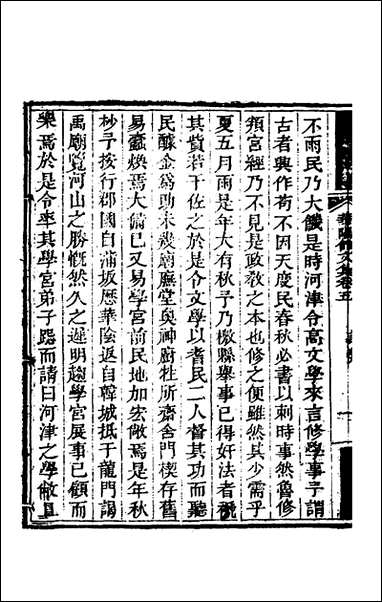 文集卷五
不雨民乃大饑是時河津令高文學來言修學事予謂
古者興作苟不因天度民春秋必書以刺時事然魯修
頖宮經乃不見是政敎之本也修之便雖然其少需乎
夏五月雨是年大有秋予乃檄縣舉事已得好法者
其貲若干佐之於是令文學以耆民二人督其功而聽
民醵金爲助未幾廟廡堂奧神廚牲所齋舍門楔存舊
易蠹煥焉大備已又易學宮前民地加宏敞焉是年秋
杪予按行郡國自蒲坂歷華陰返自韓城抵于龍門謁
禹廟覽河山之勝慨然久之遲明趨學宮展事已顧而
樂焉於是令率其學宮弟子而請曰河津之學敝且